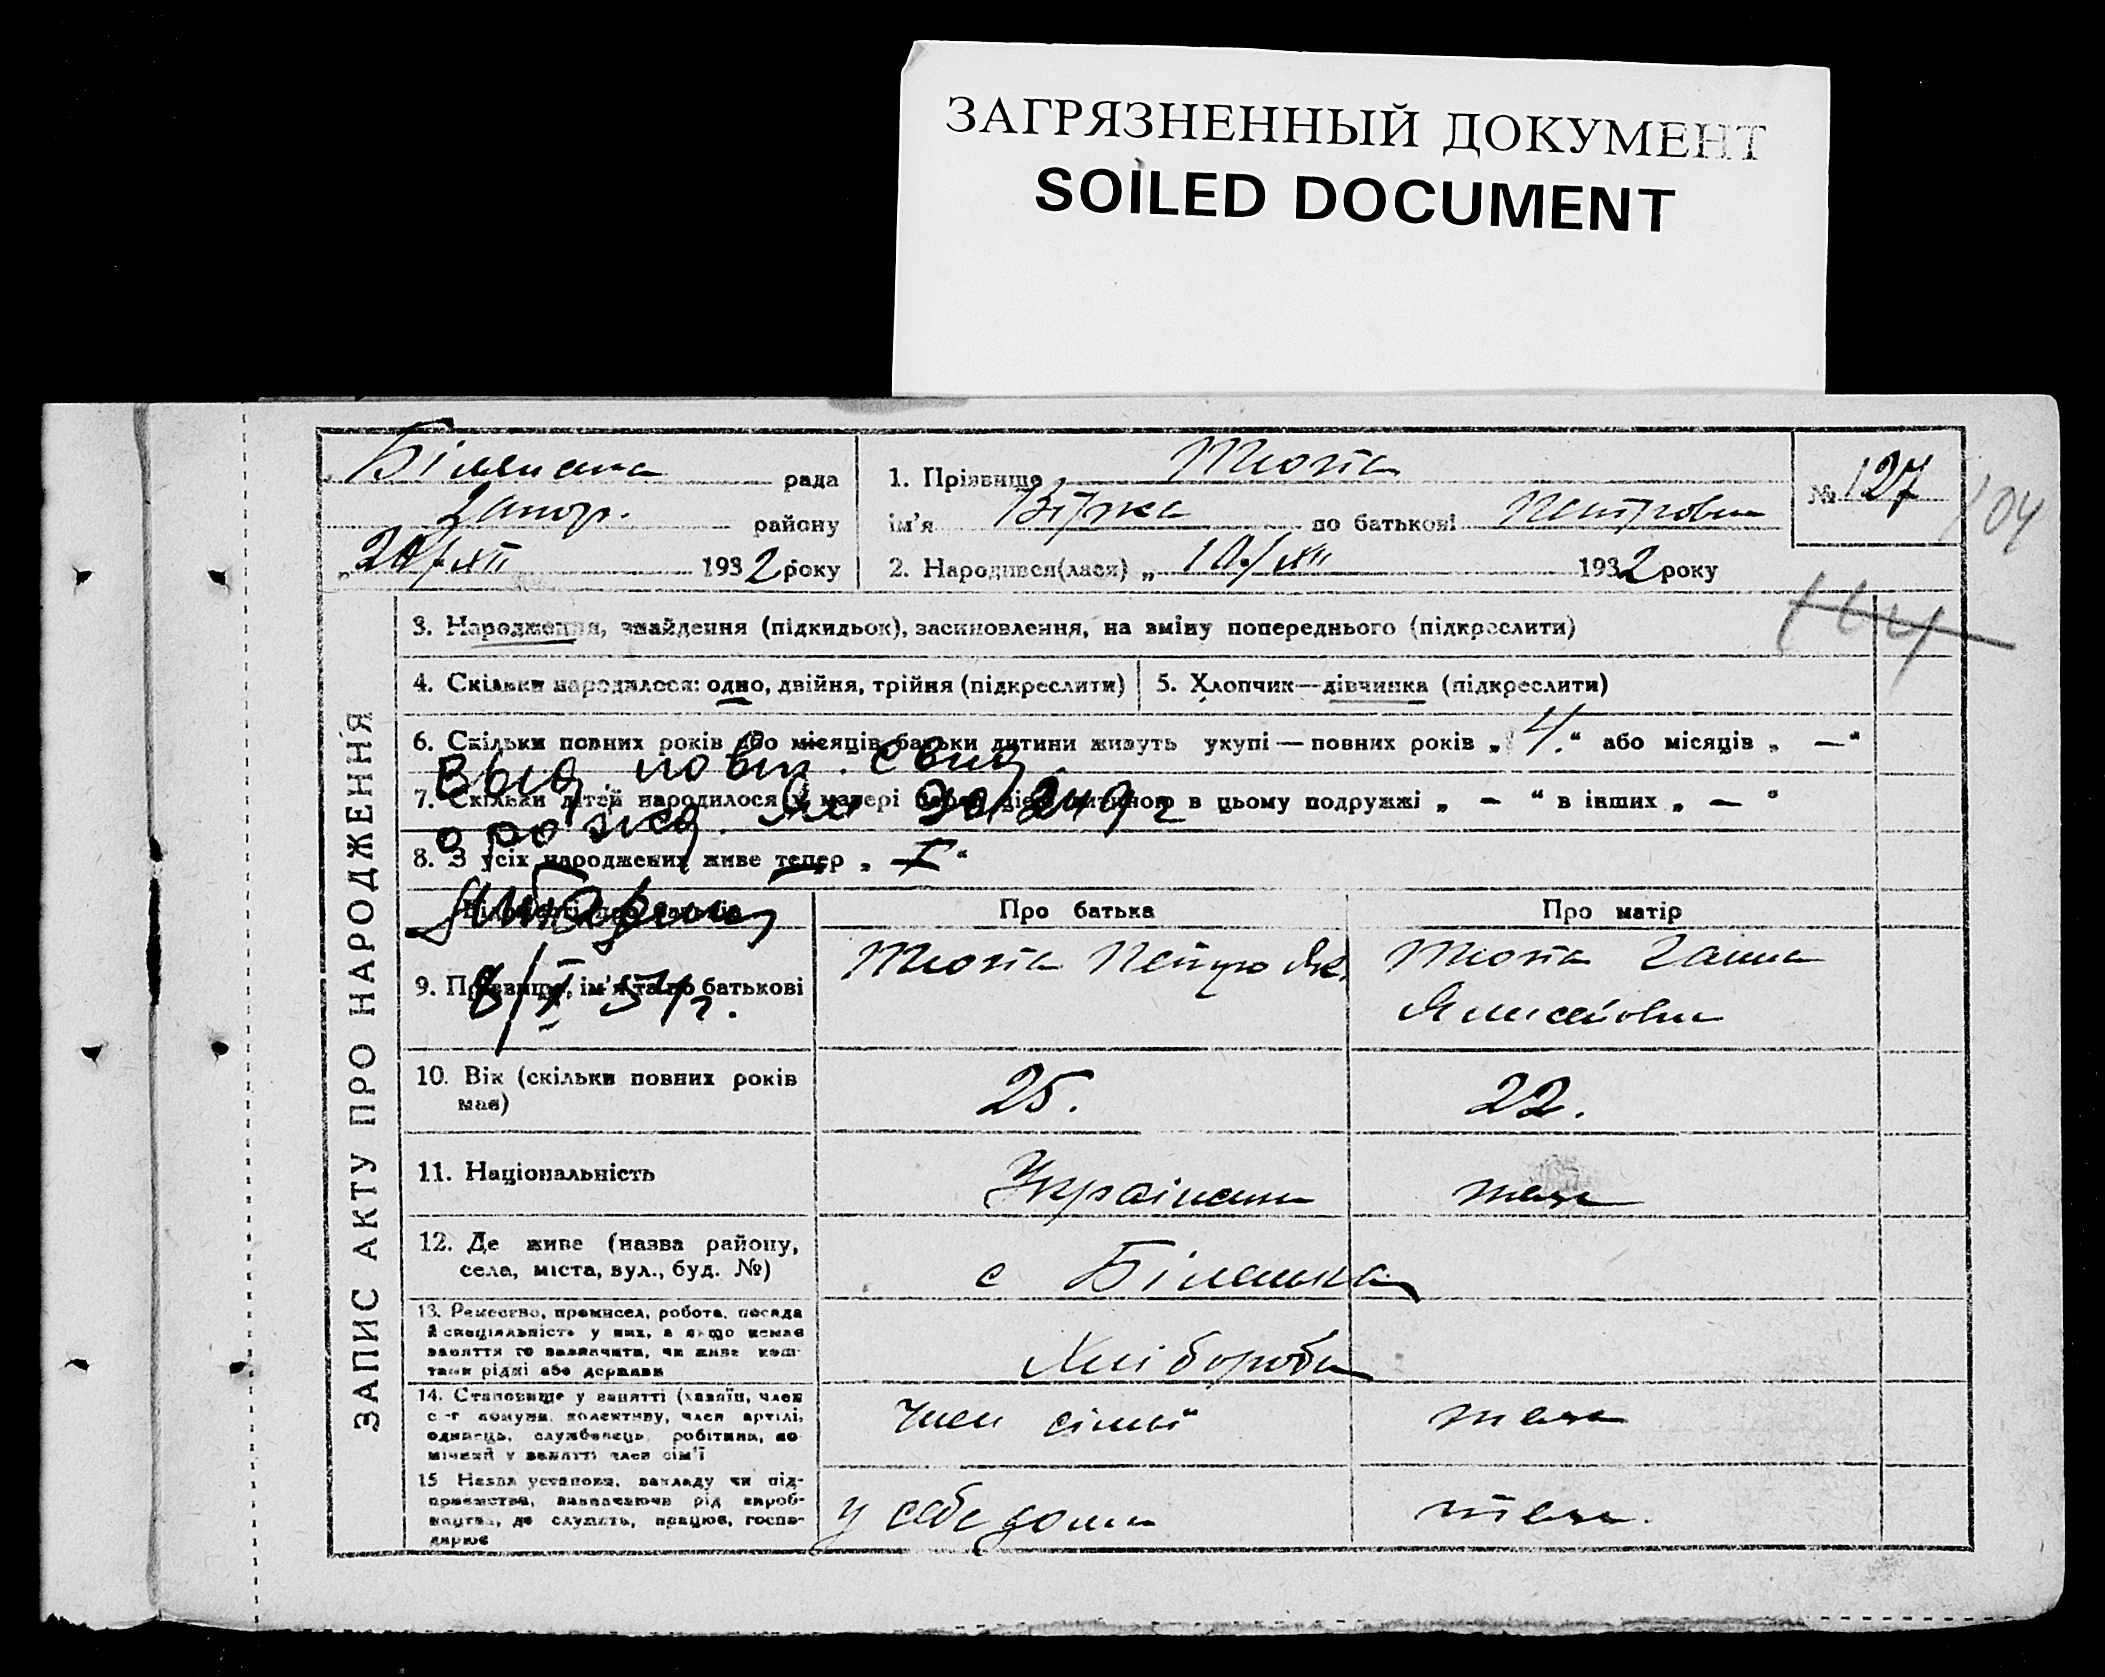 ЗАГРЯЗНЕННЫЙ ДОКУМЕНТ
SOILED DOCUMENT
рада
Запор. району
„20/XII 1932 року
1. Прізвище Тюпа
ім’я Вірка по батькові Петровна
2. Народився(лася) „10/XII 1932 року
№ 127
104
ЗАПИС АКТУ ПРО НАРОДЖЕННЯ
3. Народження, знайдення (підкидьок), засиновлення, на зміну попереднього (підкреслити)
4. Скільки народилося: одно, двійня, трійня (підкреслити)
5. Хлопчик—дівчинка (підкреслити)
6. Скільки повних років або місяців батьки дитини живуть укупі — повних років „4.“ або місяців „ — “
Выд. повт. свид.
7. Скільки дітей народилося у матері перед цією дитиною в цьому подружжі „ — “ в інших „ — “
о рожд.
8. З усіх народжених живе тепер „ I “
Про батька
Про матір
9. Прізвище, ім’я та по батькові
8/I 54 г.
Тюпа Петро Як.
Тюпа Ганна
10. Вік (скільки повних років має)
25.
22.
11. Національність
Українець
теж
12. Де живе (назва району,
села, міста, вул., буд. №)
с Біленька
13. Ремество, промисел, робота, посада
й спеціяльність у них, а якщо немає
заняття то зазначити, чи живе кош-
тами рідні або держави
Хлібороби
14. Становище у занятті (хазяїн, член
с.-г. комуни, колективу, член артілі,
одинець, службовець, робітник, по-
мічний у занятті член сім’ї
Член сімьї
теж
15 Назва установи, закладу чи під-
приємства, визначаючи рід вироб-
ництва, де служить, працює, госпо-
дарює
у себе дома
теж.